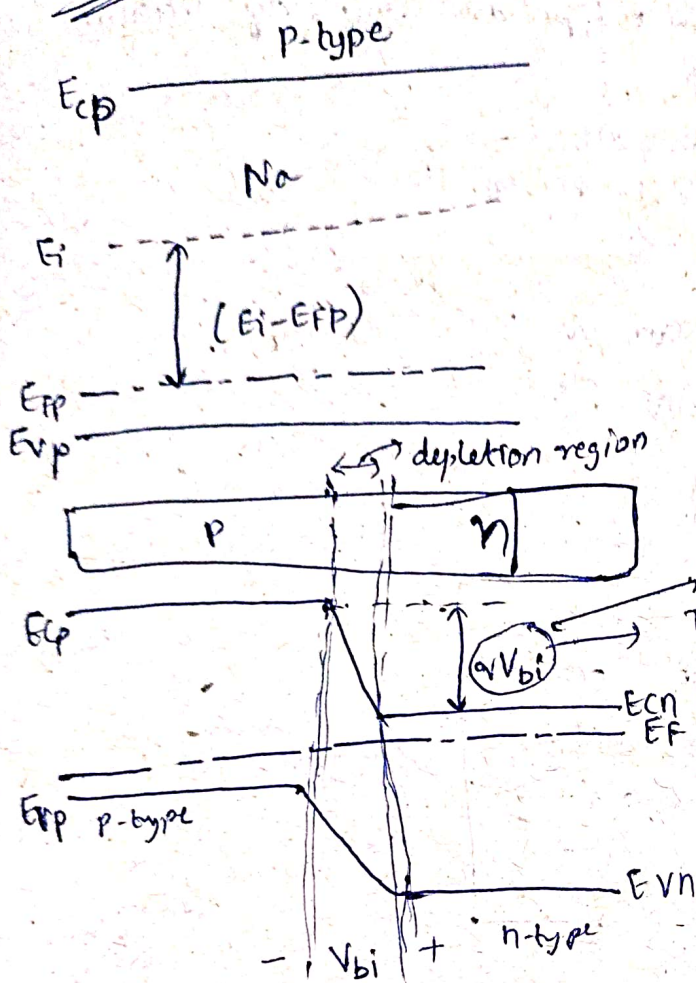 p-type
Ecp
Na
Ei
(Ei-EFP)
EFP
Evp
depletion region
P
n
Ecp
qVbi
Ecn
EF
Evp p-type
Evn
n-type
- Vbi +